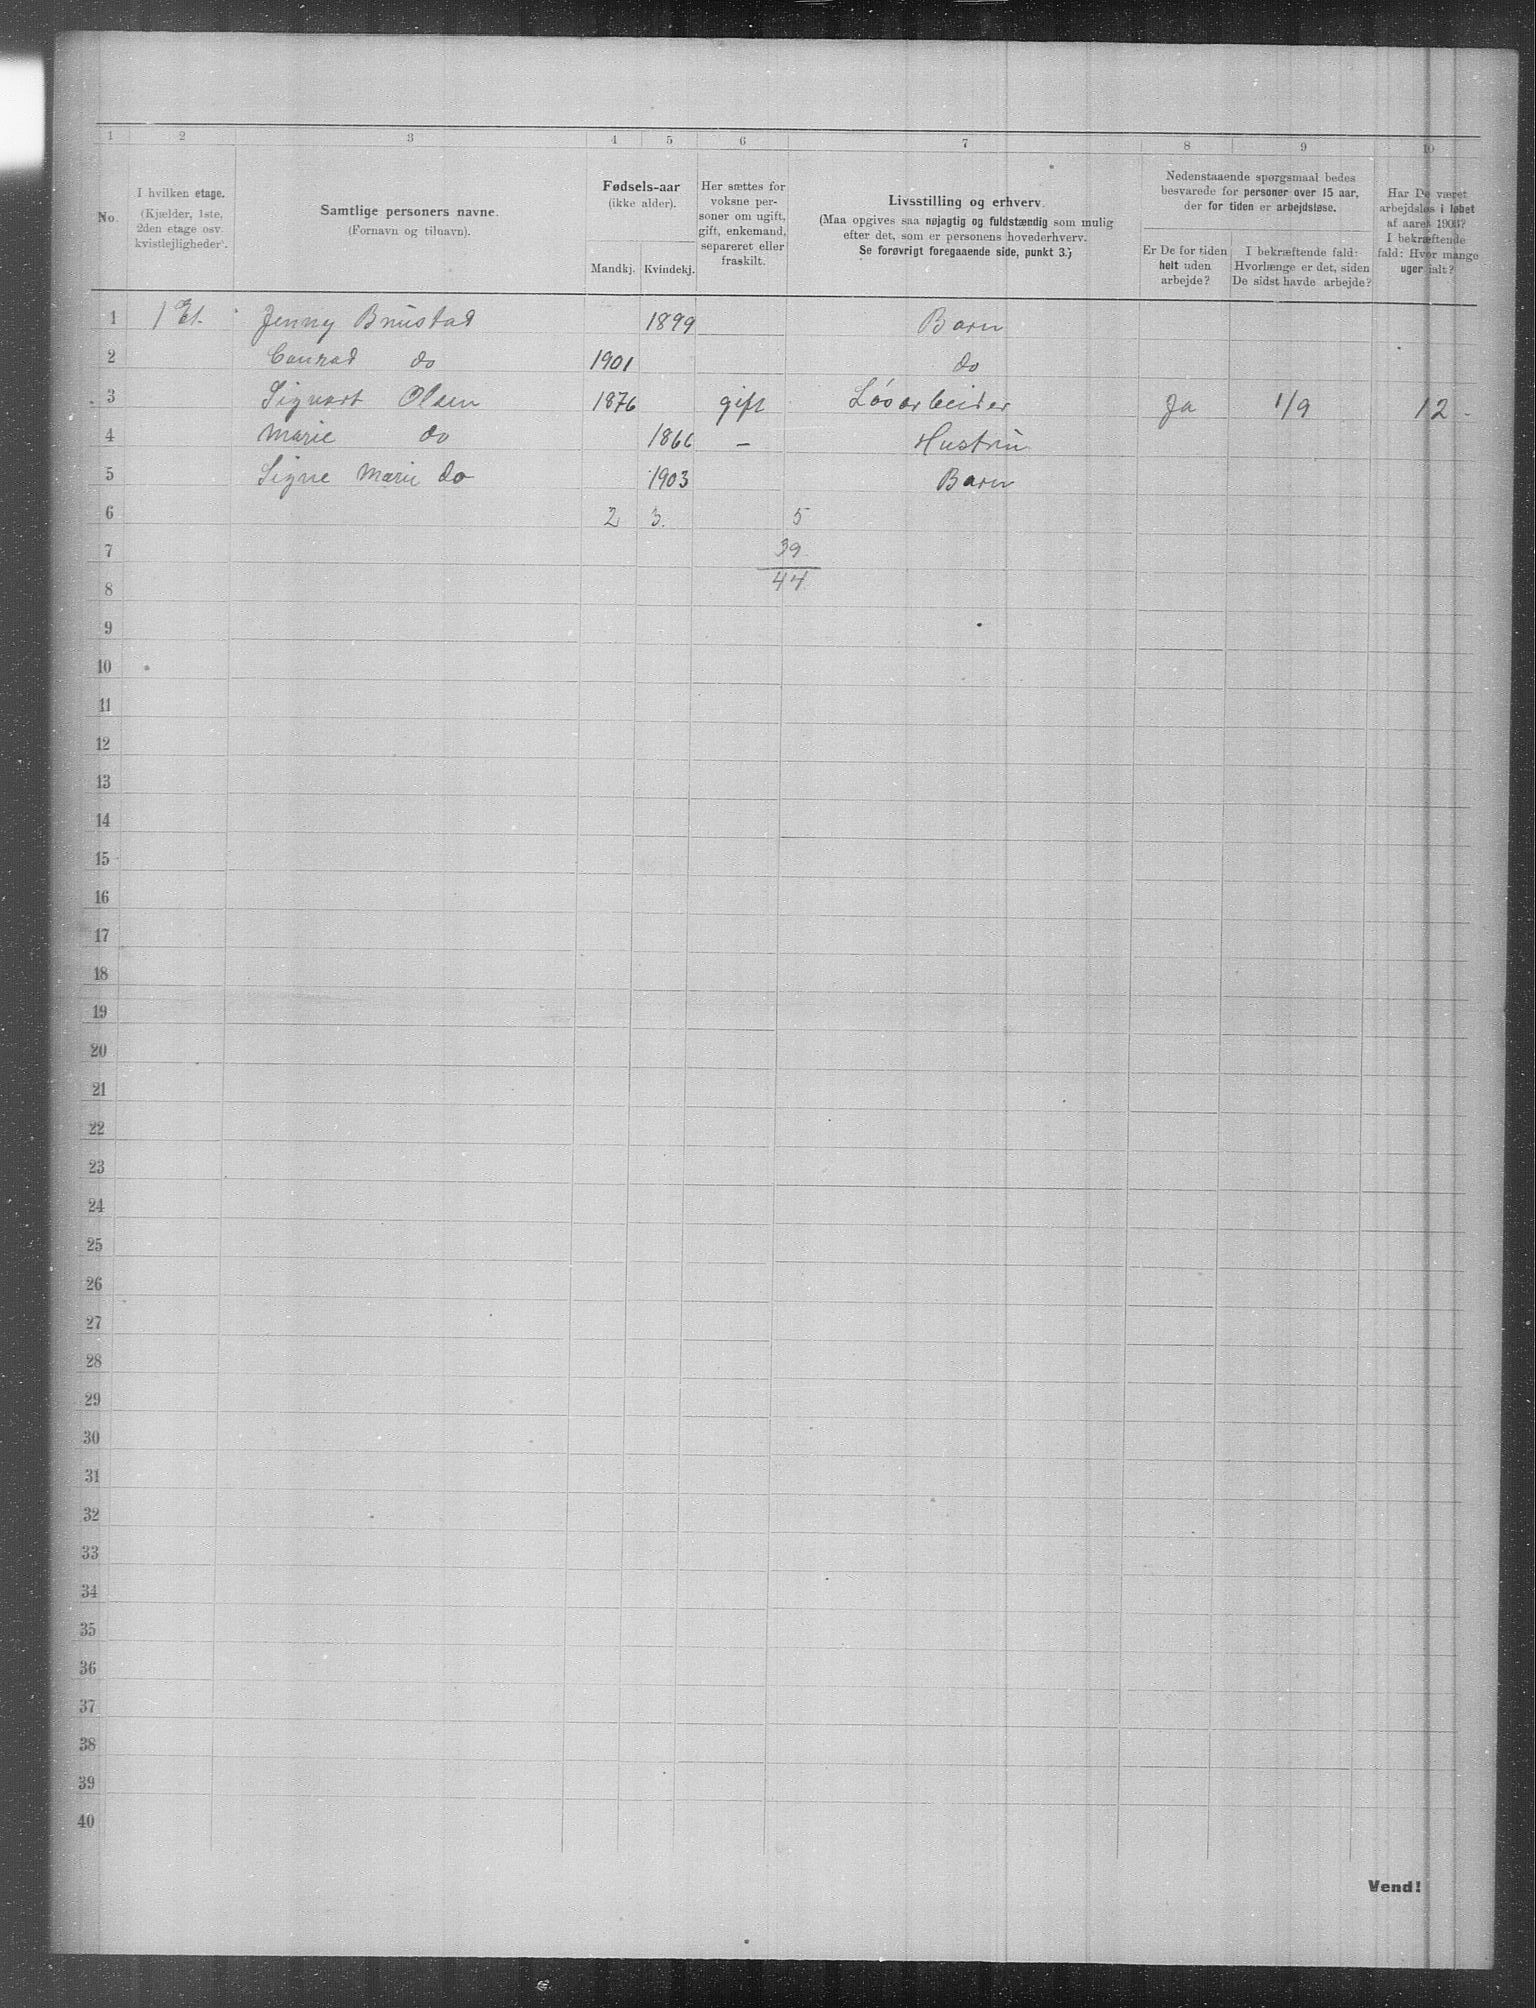 1 2 3 4 5 6 7 8 9 10
No.
I hvilken etage.
(Kjælder, 1ste,
2den etage osv.
kvistlejligheder).
Samtlige personers navne.
(Fornavn og tilnavn).
Fødsels-aar
(ikke alder).
Mandkj. Kvindekj.
Her sættes for
voksne per-
soner om ugift,
gift, enkemand,
separeret eller
fraskilt.
Livsstilling og erhverv.
(Maa opgives saa nøjagtig og fuldstændig som mulig
efter det, som er personens hovederhverv.
Se forøvrigt foregaaende side, punkt 3.)
Nedenstaaende spørgsmaal bedes
besvarede for personer over 15 aar,
der for tiden er arbejdsløse.
Er De for tiden
helt uden
arbejde?
I bekræftende fald:
Hvorlænge er det, siden
De sidst havde arbejde?
Har De været
arbejdsløs i løbet
af aaret 1903?
I bekræftende
fald: Hvor mange
uger ialt?
1 1 Et. Jenny Brustad 1899 Barn
2 Conrad do 1901 do
3 Sigvart Olsen 1876 gift Løsarbeider Ja 1/9 12
4 Marie do 1866 - Hustru
5 Signe Marie do 1903 Barn
6 2 3. 5
7 39
8 44
9
10
11
12
13
14
15
16
17
18
19
20
21
22
23
24
25
26
27
28
29
30
31
32
33
34
35
36
37
38
39
40
Vend!